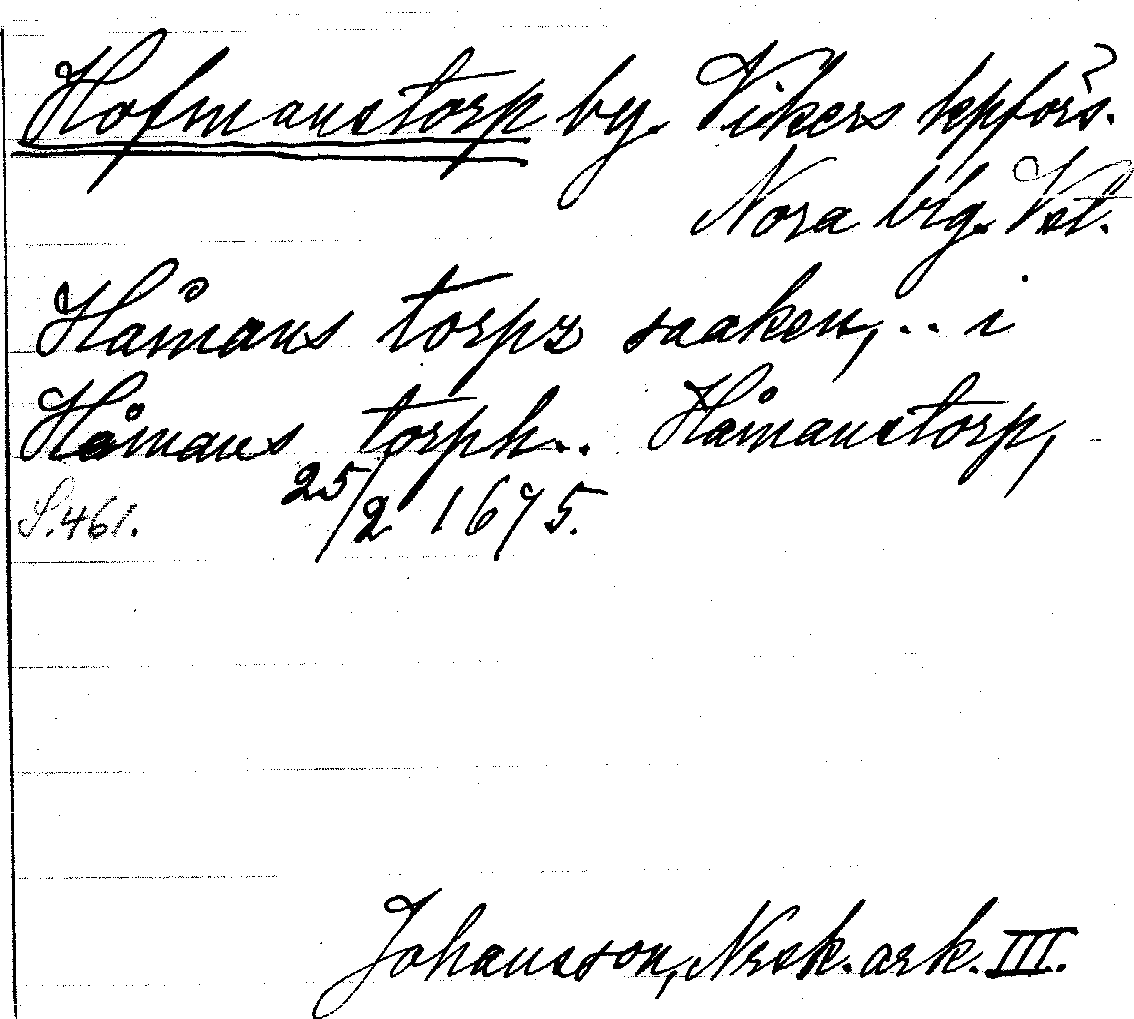 Hofmanstorp by. Vikers kpförs.
Nora bg. Vst.
Håmans torpz saaken,.. i
Håmans torph.. Håmanstorp,
S. 461. 25/2 1675.
Johansson, Nrsk. ark. III.